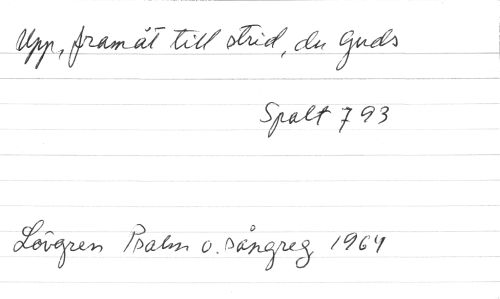 Upp, framåt till strid, du Guds
Spalt 793
Lövgren Psalm o. sångreg 1964